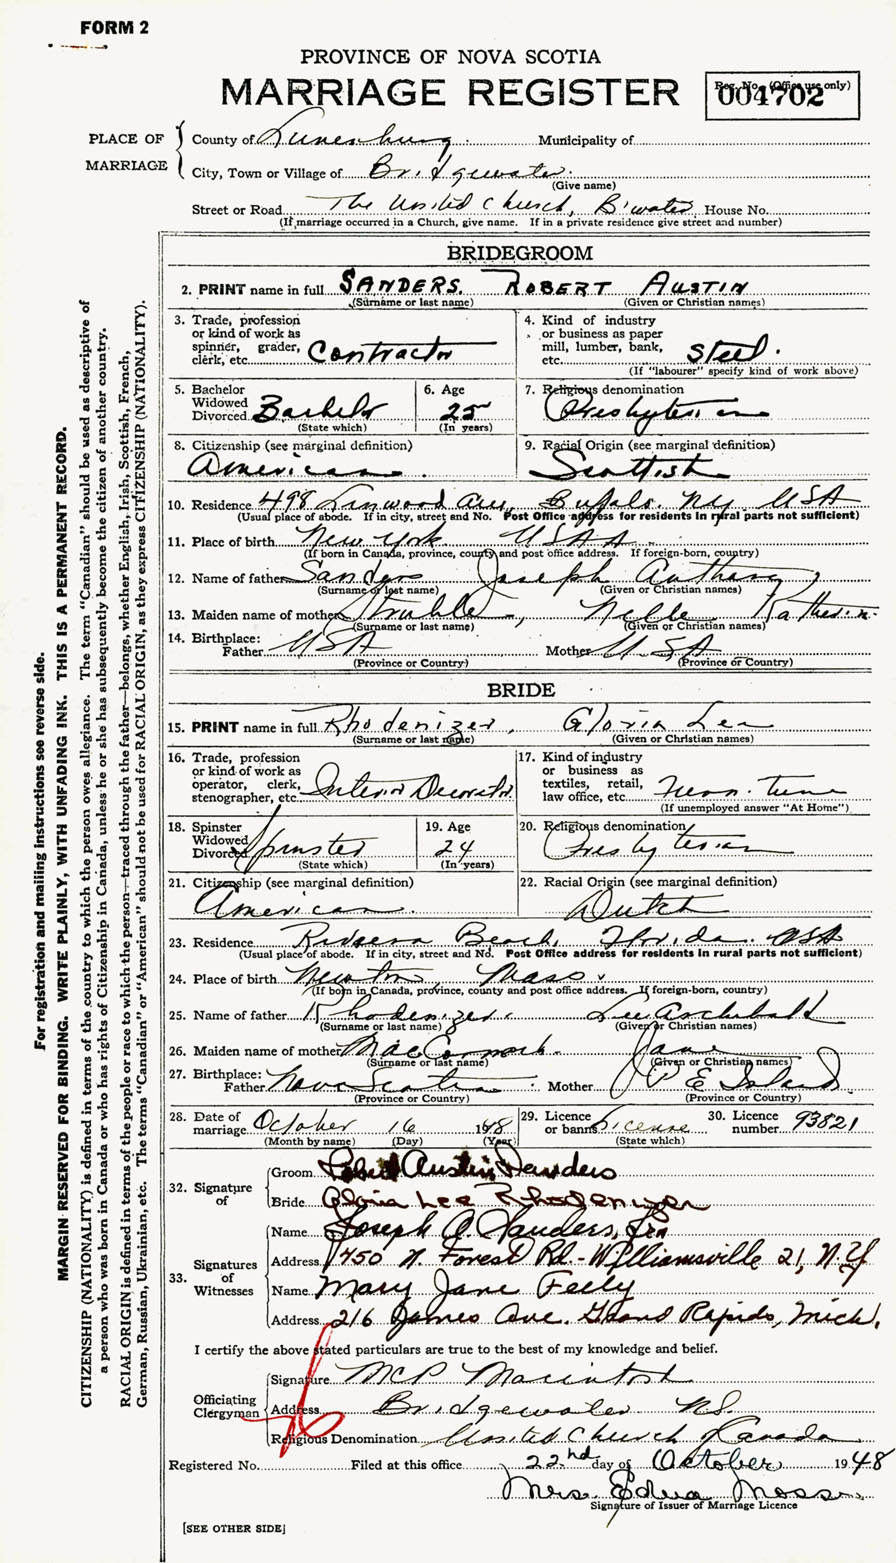 FORM 2
PROVINCE OF NOVA SCOTIA
MARRIAGE REGISTER
Reg. No. (Office use only)
004702
PLACE OF MARRIAGE
County of Lunenburg Municipality of
City, Town or Village of Bridgewater
(Give name)
Street or Road The United Church, B'water House No.
(If marriage occurred in a Church, give name. If in a private residence give street and number)
BRIDEGROOM
2. PRINT name in full SANDERS ROBERT AUSTIN
(Surname or last name) (Given or Christian names)
3. Trade, profession or kind of work as spinner, grader, clerk, etc. Contractor
4. Kind of industry or business as paper mill, lumber, bank, etc. Steel.
(If "labourer" specify kind of work above)
5. Bachelor Widowed Divorced Bachelor
(State which)
6. Age 25
(In years)
7. Religious denomination Presbyterian
8. Citizenship (see marginal definition) American
9. Racial Origin (see marginal definition) Scottish
10. Residence 498 Linwood Ave, Buffalo. NY USA
(Usual place of abode. If in city, street and No. Post Office address for residents in rural parts not sufficient)
11. Place of birth New York USA
(If born in Canada, province, county and post office address. If foreign-born, country)
12. Name of father Sanders Joseph Anthony
(Surname or last name) (Given or Christian names)
13. Maiden name of mother Struble, Nelle
(Surname or last name) (Given or Christian names)
14. Birthplace:
Father USA Mother USA
(Province or Country) (Province or Country)
BRIDE
15. PRINT name in full Rhodenizer, Gloria Lee
(Surname or last name) (Given or Christian names)
16. Trade, profession or kind of work as operator, clerk, stenographer, etc. Interior Decorator
17. Kind of industry or business as textiles, retail, law office, etc.
(If unemployed answer "At Home")
18. Spinster Widowed Divorced Spinster
(State which)
19. Age 24
(In years)
20. Religious denomination Presbyterian
21. Citizenship (see marginal definition) American
22. Racial Origin (see marginal definition) Dutch
23. Residence Riviera Beach, Florida. USA
(Usual place of abode. If in city, street and No. Post Office address for residents in rural parts not sufficient)
24. Place of birth Newton, Mass.
(If born in Canada, province, county and post office address. If foreign-born, country)
25. Name of father Rhodenizer. Lee Archibald
(Surname or last name) (Given or Christian names)
26. Maiden name of mother MacCormack. Jane
(Surname or last name) (Given or Christian names)
27. Birthplace:
Father Nova Scotia Mother P E Island
(Province or Country) (Province or Country)
28. Date of marriage October 16 1948
(Month by name) (Day) (Year)
29. Licence or banns License
(State which)
30. Licence number 93821
32. Signature of
Groom Robert Austin Sanders
Bride Gloria Lee Rhodenizer
33. Signatures of Witnesses
Name Joseph A. Sanders,
Address 1450 N. Forest Rd - Williamsville 21, N.Y
Name Mary Jane Feely
Address 216 James Ave. Grand Rapids, Mich.
I certify the above stated particulars are true to the best of my knowledge and belief.
Officiating Clergyman
Signature Macintosh
Address Bridgewater NS.
Religious Denomination United Church of Canada
Registered No. Filed at this office 22nd day of October 1948
Mrs. Edna Moss
Signature of Issuer of Marriage Licence
[SEE OTHER SIDE]
For registration and mailing instructions see reverse side.
MARGIN RESERVED FOR BINDING. WRITE PLAINLY, WITH UNFADING INK. THIS IS A PERMANENT RECORD.
CITIZENSHIP (NATIONALITY) is defined in terms of the country to which the person owes allegiance. The term "Canadian" should be used as descriptive of
a person who was born in Canada or who has rights of Citizenship in Canada, unless he or she has subsequently become the citizen of another country.
RACIAL ORIGIN is defined in terms of the people or race to which the person—traced through the father—belongs, whether English, Irish, Scottish, French,
German, Russian, Ukrainian, etc. The terms "Canadian" or "American" should not be used for RACIAL ORIGIN, as they express CITIZENSHIP (NATIONALITY).